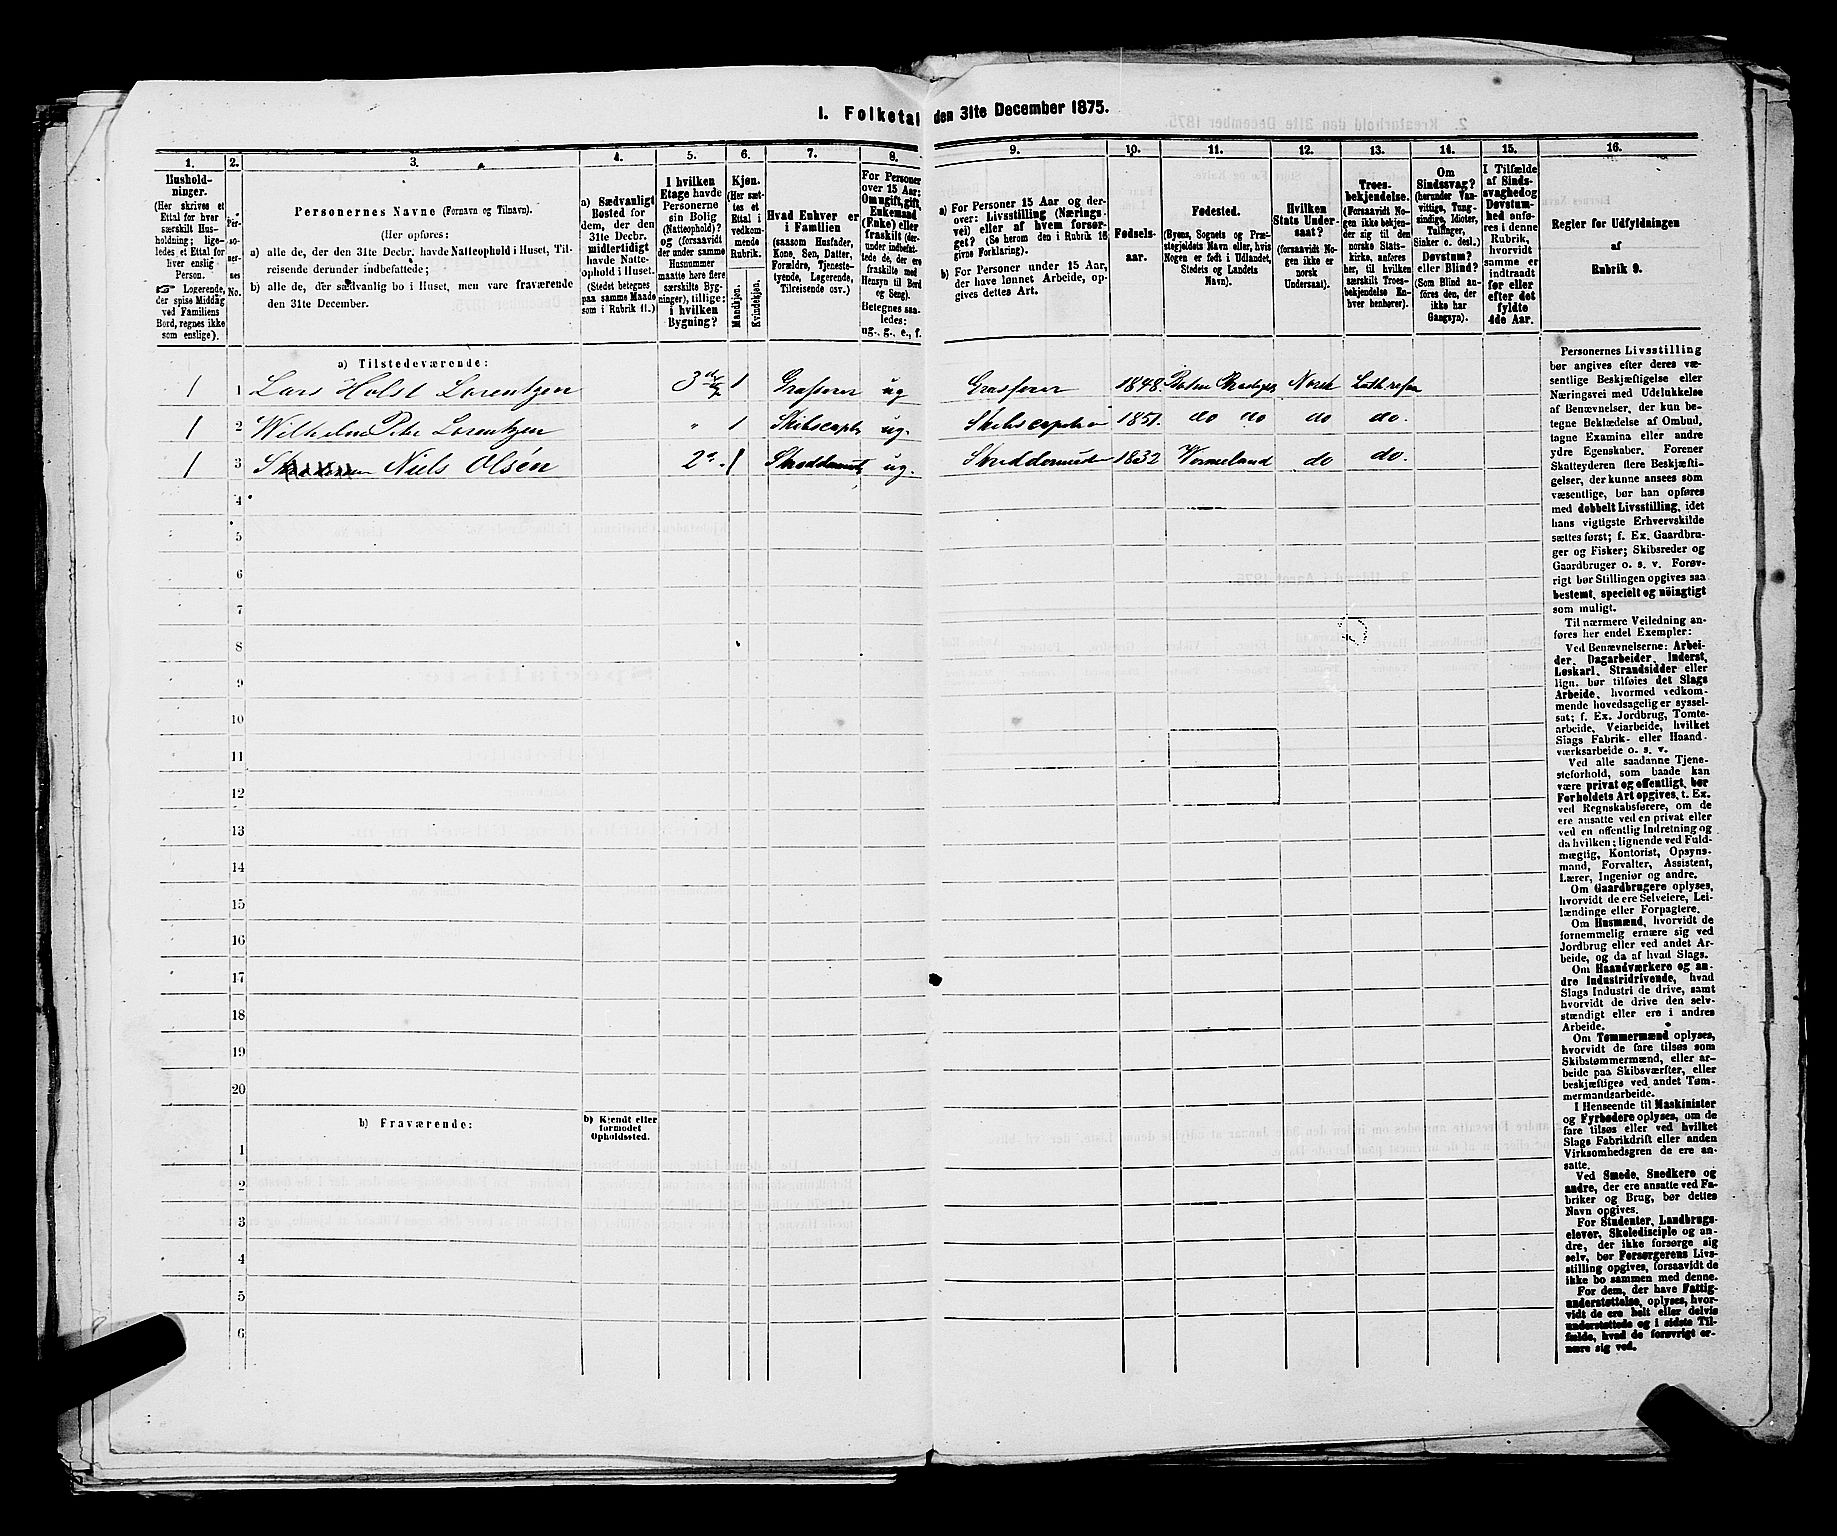 I. Folketal den 31te December 1875.
1. 2. 3. 4. 5. 6. 7. 8. 9. 10. 11. 12. 13. 14. 15. 16.
Hushold-
ninger.
(Her skrives et
Ettal for hver
særskilt Hus-
holdning; lige-
ledes et Ettal for
hver enslig
Person.
☞ Logerende,
der spise Middag
ved Familiens
Bord, regnes ikke
som enslige).
Per-
so-
ner-
nes
No.
Personernes Navne (Fornavn og Tilnavn).
(Her opføres:
a) alle de, der den 31te Decbr. havde Natteophold i Huset, Til-
reisende derunder indbefattede;
b) alle de, der sædvanlig bo i Huset, men vare fraværende
den 31te December.
a) Sædvanligt
Bosted for
dem, der den
31te Decbr.
midlertidigt
havde Natte-
ophold i Huset.
(Stedet betegnes
paa samme Maade
som i Rubrik 11.)
I hvilken
Etage havde
Personerne
sin Bolig
(Natteophold)?
og (forsaavidt
der under samme
Husnummer
maatte høre flere
særskilte Byg-
ninger), tillige:
i hvilken
Bygning?
Kjøn.
(Her sæt-
tes et
Ettal i
vedkom-
mende
Rubrik.
Mandkjøn.
Kvindekjøn.
Hvad Enhver er
i Familien
(saasom Husfader,
Kone, Søn, Datter,
Forældre, Tjeneste-
tyende, Logerende,
Tilreisende osv.)
For Personer
over 15 Aar:
Om ugift, gift,
Enkemand
(Enke) eller
fraskilt (der-
under indbefat-
tede de, der ere
fraskilte med
Hensyn til Bord
og Seng).
Betegnes saa-
ledes:
ug., g., e., f.
a) For Personer 15 Aar og der-
over: Livsstilling (Nærings-
vei) eller af hvem forsør-
get? (Se herom den i Rubrik 16
givne Forklaring).
b) For Personer under 15 Aar,
der have lønnet Arbeide, op-
gives dettes Art.
Fødsels-
aar.
Fødested.
(Byens, Sognets og Præ-
stegjeldets Navn eller, hvis
Nogen er født i Udlandet,
Stedets og Landets
Navn).
Hvilken
Stats Under-
saat?
(forsaavidt No-
gen ikke er
norsk
Undersaat).
Troes-
bekjendelse.
(Forsaavidt No-
gen ikke bekjen-
der sig til den
norske Stats-
kirke, anføres
her, til hvilken
særskilt Troes-
bekjendelse En-
hver henhører).
Om
Sindssvag?
(herunder Van-
vittige, Tung-
sindige, Idioter,
Tullinger,
Sinker o. desl.)
Døvstum?
eller Blind?
(Som Blind an-
føres den, der
ikke har
Gangsyn).
I Tilfælde
af Sinds-
svaghed og
Døvstum-
hed anfø-
res i denne
Rubrik,
hvorvidt
samme er
indtraadt
før eller
efter det
fyldte
4de Aar.
Regler for Udfyldningen
af
Rubrik 9.
a) Tilstedeværende:
1 1 Lars Holst Lorentzen 3 1 ug 1848 Norsk
1 2 Wilhelm Peter Lorentzen " 1 Skibscapt ug. Skibscaptein 1851. do do do do.
1 3 Niels Olsén 2 1 ug. 1832 Vermeland do do.
4
5
6
7
8
9
10
11
12
13
14
15
16
17
18
19
20
b) Fraværende:
b) Kjendt eller
formodet
Opholdssted.
1
2
3
4
5
6
Personernes Livsstilling
bør angives efter deres væ-
sentlige Beskjæftigelse eller
Næringsvei med Udelukkelse
af Benævnelser, der kun be-
tegne Beklædelse af Ombud,
tagne Examina eller andre
ydre Egenskaber. Forener
Skatteyderen flere Beskjæfti-
gelser, der kunne ansees som
væsentlige, bør han opføres
med dobbelt Livsstilling, idet
hans vigtigste Erhvervskilde
sættes først; f. Ex. Gaardbru-
ger og Fisker; Skibsreder og
Gaardbruger o. s. v. Forøv-
rigt bør Stillingen opgives saa
bestemt, specielt og nöiagtigt
som muligt.
Til nærmere Veiledning an-
føres her endel Exempler:
Ved Benævnelserne: Arbei-
der, Dagarbeider, Inderst,
Løskarl, Strandsidder eller
lign. bør tilføies det Slags
Arbeide, hvormed vedkom-
mende hovedsagelig er syssel-
sat; f. Ex. Jordbrug, Tomte-
arbeide, Veiarbeide, hvilket
Slags Fabrik- eller Haand-
værksarbeide o. s. v.
Ved alle saadanne Tjene-
steforhold, som baade kan
være privat og offentligt, bør
Forholdets Art opgives, t. Ex.
ved Regnskabsførere, om de
ere ansatte ved en privat eller
ved en offentlig Indretning og
da hvilken; lignende ved Fuld-
mægtig, Kontorist, Opsyns-
mand, Forvalter, Assistent,
Lærer, Ingeniør og andre.
Om Gaardbrugere oplyses,
hvorvidt de ere Selveiere, Lei-
lændinge eller Forpagtere.
Om Husmænd, hvorvidt de
fornemmelig ernære sig ved
Jordbrug eller ved andet Ar-
beide, og da af hvad Slags.
Om Haandværkere og an-
dre Industridrivende, hvad
Slags Industri de drive, samt
hvorvidt de drive den selv-
stændigt eller ere i andres
Arbeide.
Om Tømmermænd oplyses,
hvorvidt de fare tilsøs som
Skibstømmermænd, eller ar-
beide paa Skibsværfter, eller
beskjæftiges ved andet Tøm-
mermandsarbeide.
I Henseende til Maskinister
og Fyrbødere oplyses, om de
fare tilsøs eller ved hvilket
Slags Fabrikdrift eller anden
Virksomhedsgren de ere an-
satte.
Ved Smede, Snedkere og
andre, der ere ansatte ved Fa-
briker og Brug, bør dettes
Navn opgives.
For Studenter, Landbrugs-
elever, Skoledisciple og an-
dre, der ikke forsørge sig
selv, bør Forsørgerens Livs-
stilling opgives, forsaavidt de
ikke bo sammen med denne.
For dem, der have Fattig-
understøttelse, oplyses, hvor-
vidt de ere helt eller delvis
understøttede og i sidste Til-
fælde, hvad de forøvrigt er-
nære sig ved.